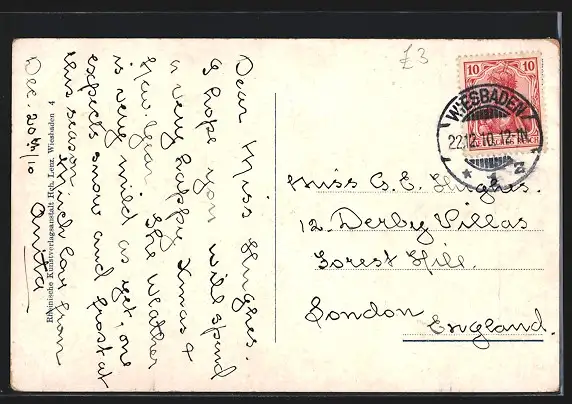 Dear Miss Hughes.
I hope you will spend
a very happy Xmas &
New Year. The weather
is very mild as yet, one
expects snow and frost at
this season.
Much love from
Anita
Dec. 20th/10
Rheinische Kunstverlagsanstalt Hch. Lenz, Wiesbaden 4
£3
10 10
DEUTSCHES REICH
WIESBADEN
22.12.10.12-1N.
* 2 z
Miss C. E. Hughes.
12. Derby Villas
Forest Hill.
London
England.